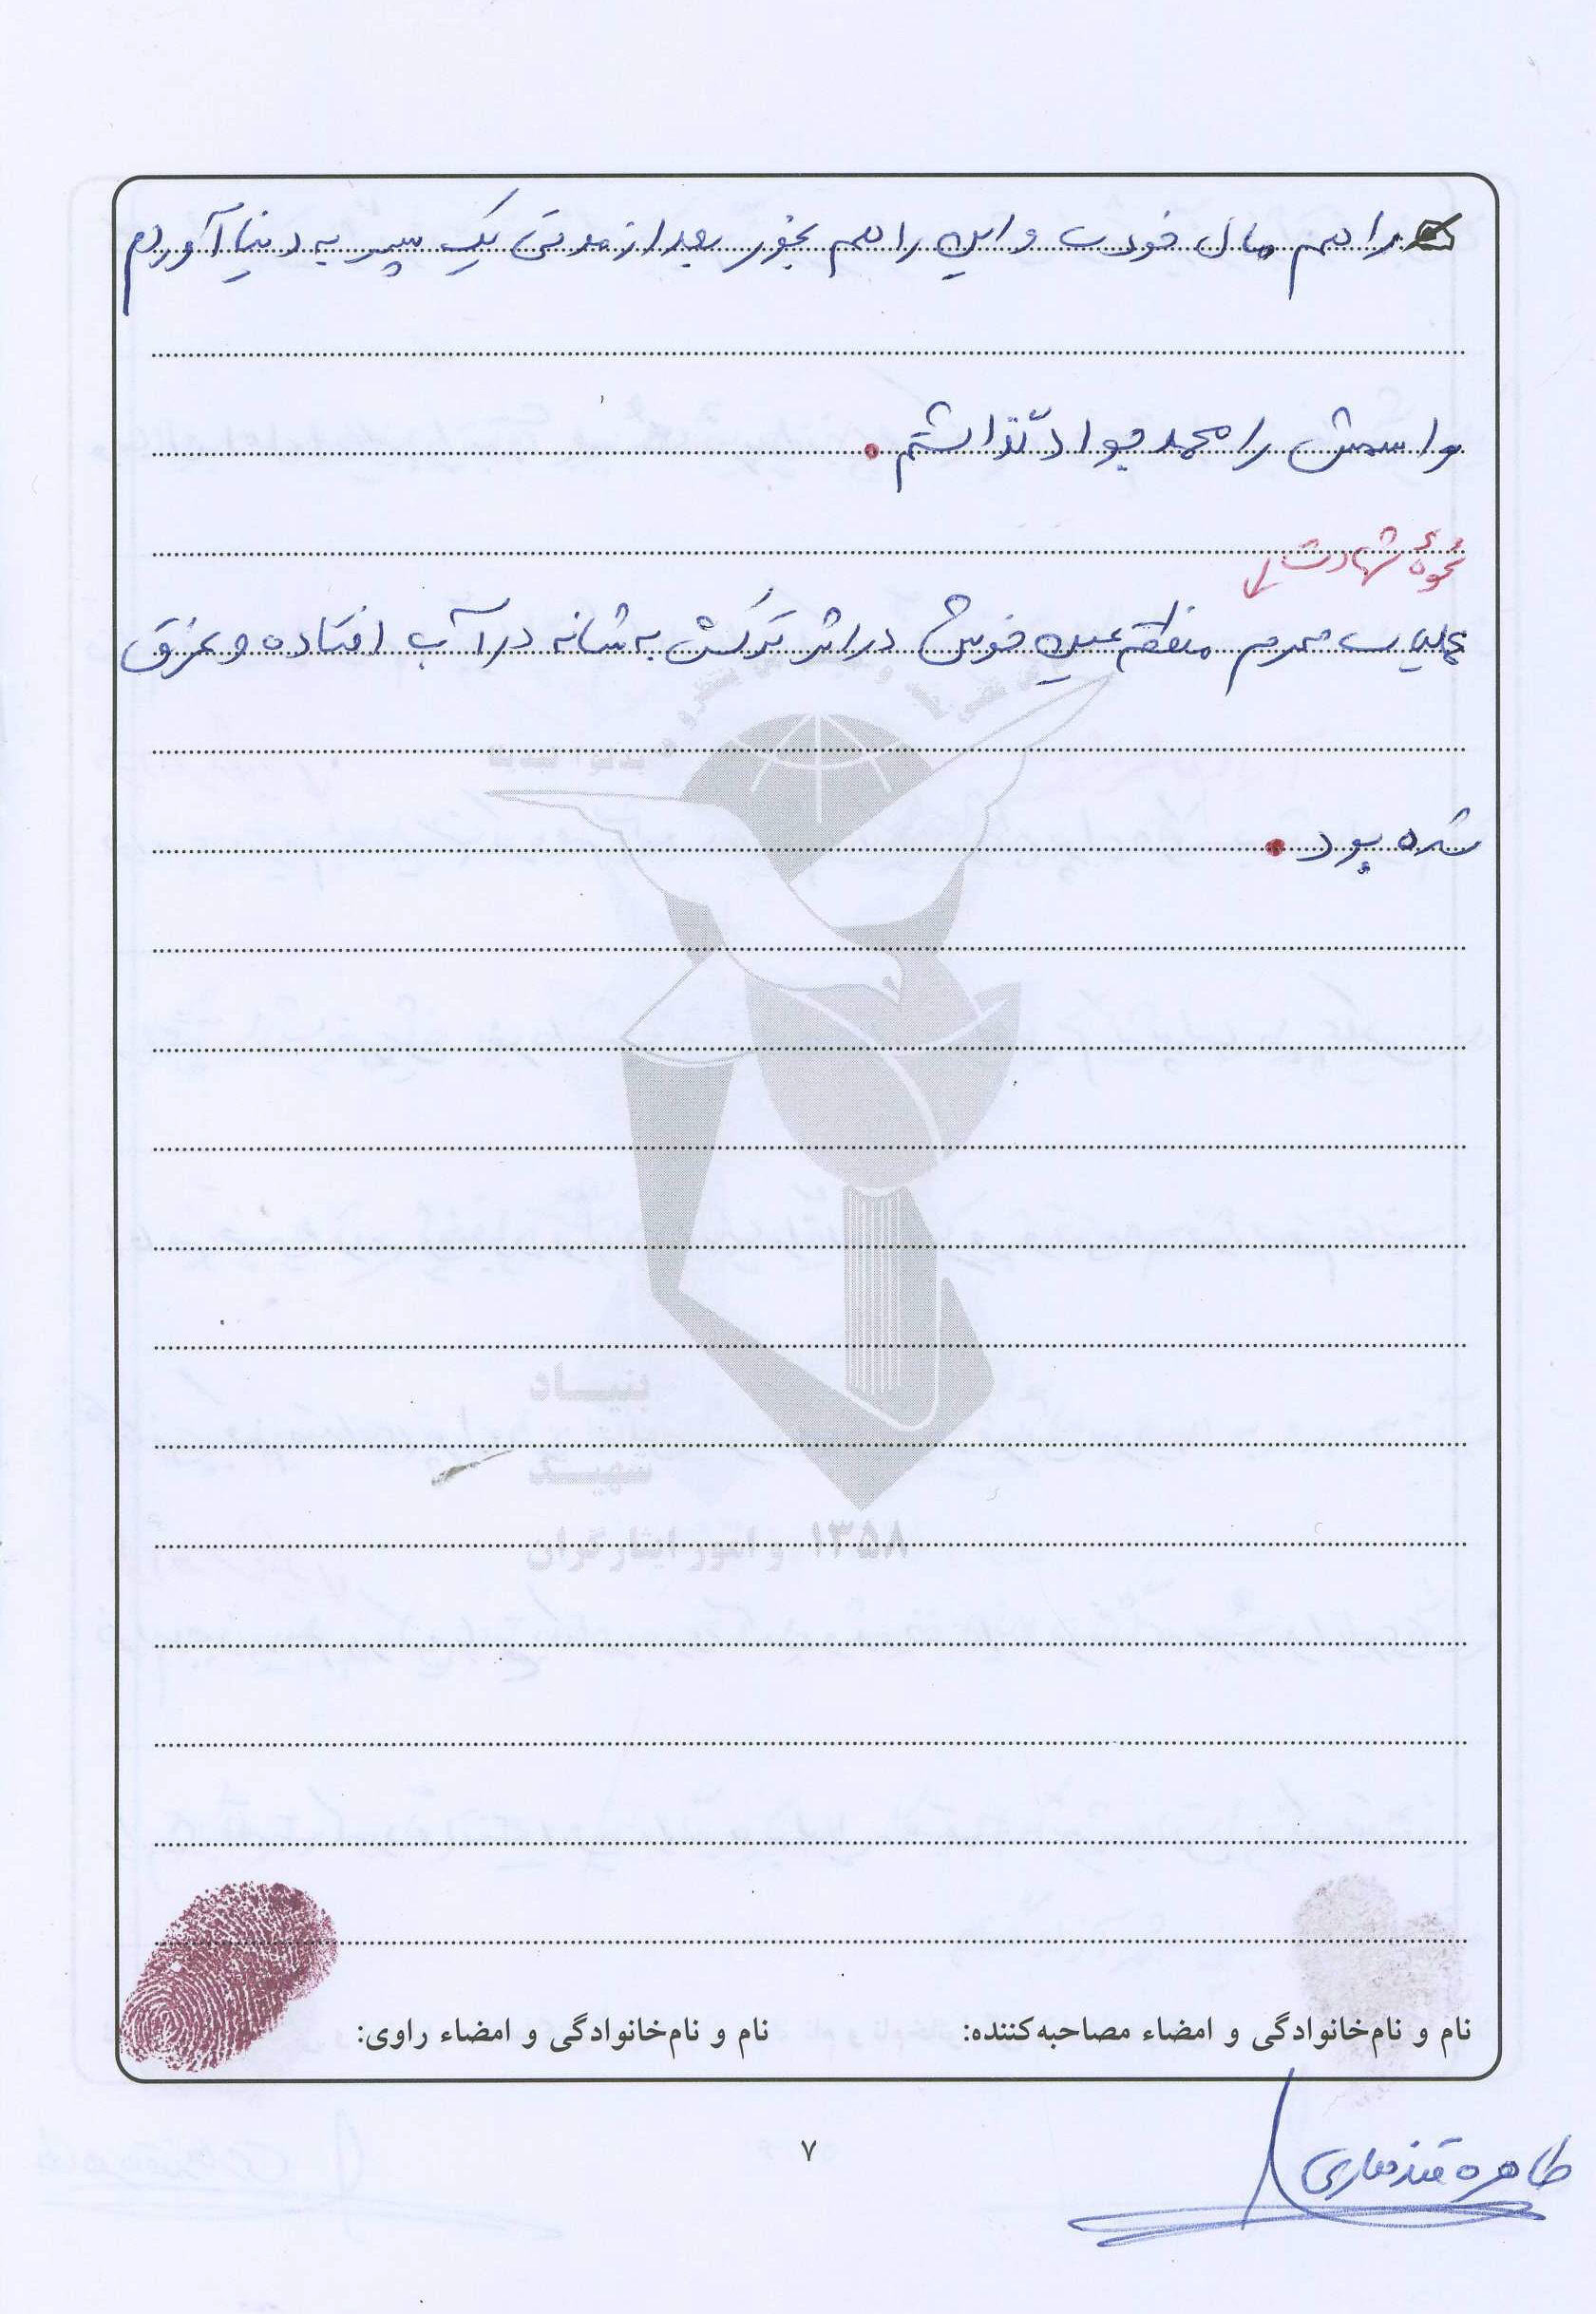 را هم مال خودت و این را هم بخور بعد از مدتی یک پسر به دنیا آوردم
و اسمش را محمد جواد گذاشتم.
نحوهٔ شهادت
عملیات محرم منطقه عین خوش در اثر ترکش به شانه در آب افتاده و غرق
شده بود.
بنیاد
شهید
و امور ایثارگران ۱۳۵۸
نام و نام‌خانوادگی و امضاء مصاحبه‌کننده:
نام و نام‌خانوادگی و امضاء راوی:
۷
طاهره قندهاری